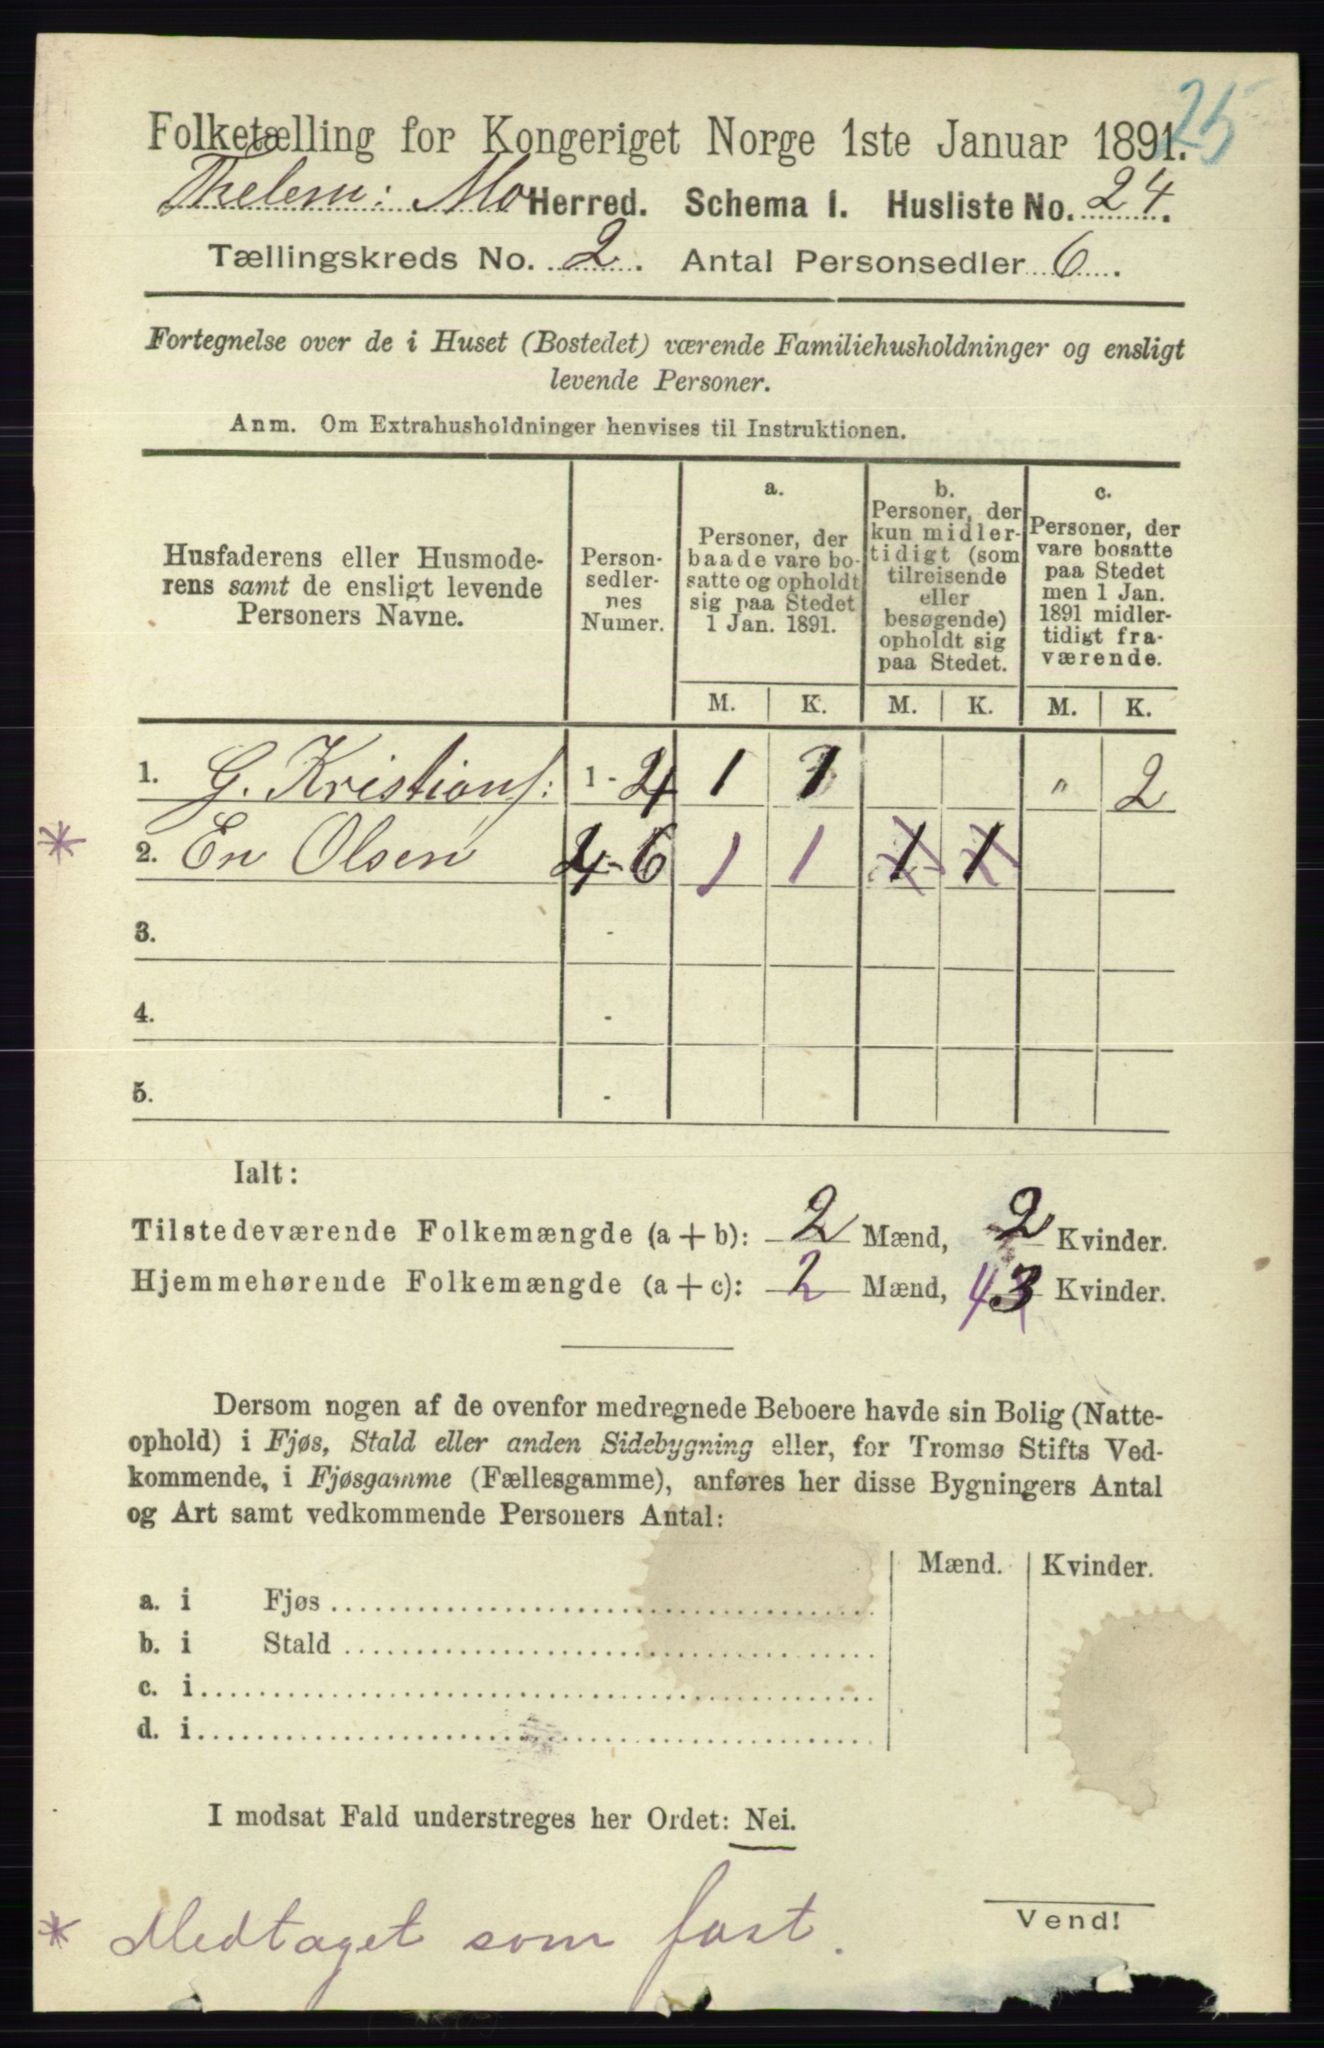 25
Folketælling for Kongeriget Norge 1ste Januar 1891.
Thelem: Mo Herred. Schema 1. Husliste No. 24.
Tællingskreds No. 2. Antal Personsedler 6.
Fortegnelse over de i Huset (Bostedet) værende Familiehusholdninger og ensligt
levende Personer.
Anm. Om Extrahusholdninger henvises til Instruktionen.
Husfaderens eller Husmode-
rens samt de ensligt levende
Personers Navne.
Person-
sedler-
nes
Numer.
a.
Personer, der
baade vare bo-
satte og opholdt
sig paa Stedet
1 Jan. 1891.
b.
Personer, der
kun midler-
tidigt (som
tilreisende
eller
besøgende)
opholdt sig
paa Stedet.
c.
Personer, der
vare bosatte
paa Stedet
men 1 Jan.
1891 midler-
tidigt fra-
værende.
M. K. M. K. M. K.
1. G. Kristians: 1 - 4 1 1 " 2
* 2. En Olsen - 6 1 1 1 1
3. -
4. -
5. -
Ialt:
Tilstedeværende Folkemængde (a + b): 2 Mænd, 2 Kvinder.
Hjemmehørende Folkemængde (a + c): 2 Mænd, 4 3 Kvinder.
Dersom nogen af de ovenfor medregnede Beboere havde sin Bolig (Natte-
ophold) i Fjøs, Stald eller anden Sidebygning eller, for Tromsø Stifts Ved-
kommende, i Fjøsgamme (Fællesgamme), anføres her disse Bygningers Antal
og Art samt vedkommende Personers Antal:
Mænd. Kvinder.
a. i Fjøs
b. i Stald
c. i
d. i
I modsat Fald understreges her Ordet: Nei.
Vend!
* Medtaget som fast.